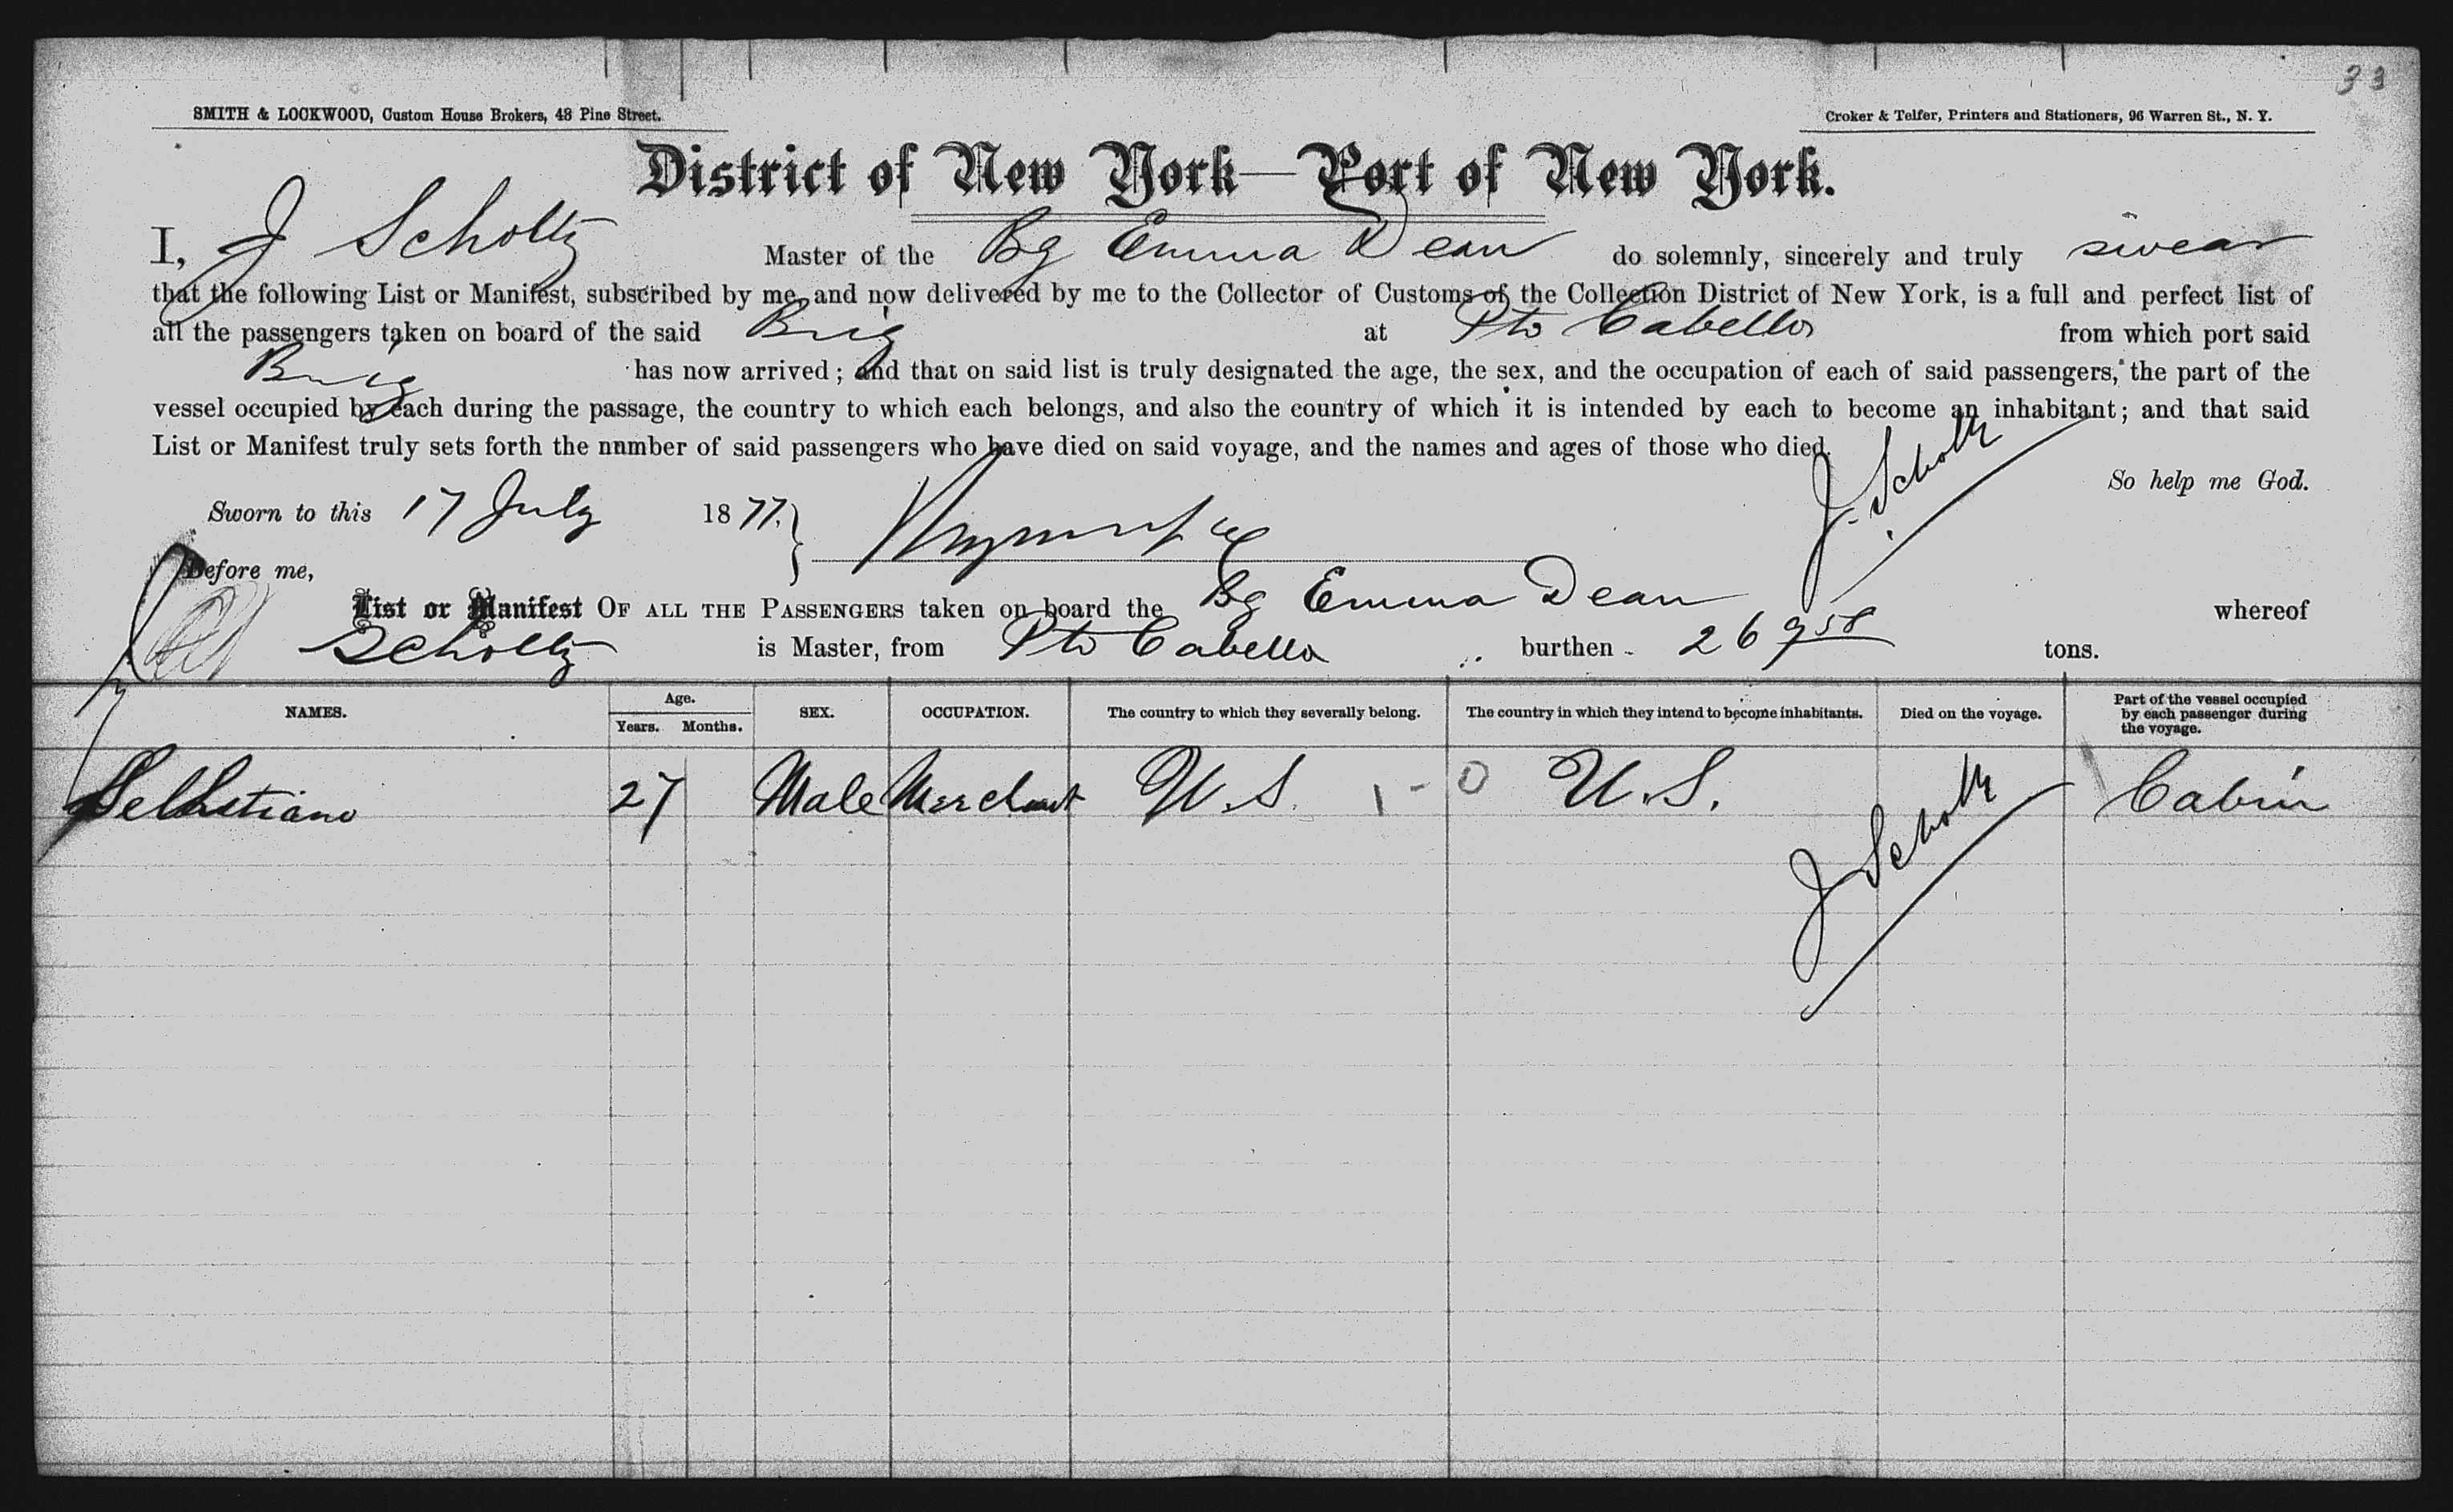 33
SMITH & LOCKWOOD, Custom House Brokers, 48 Pine Street.
Croker & Telfer, Printers and Stationers, 96 Warren St., N. Y.
District of New York—Port of New York.
I, J Scholtz Master of the Bg Emma Dean do solemnly, sincerely and truly swear
that the following List or Manifest, subscribed by me, and now delivered by me to the Collector of Customs of the Collection District of New York, is a full and perfect list of
all the passengers taken on board of the said Brig at Pto Cabello from which port said
Brig has now arrived; and that on said list is truly designated the age, the sex, and the occupation of each of said passengers, the part of the
vessel occupied by each during the passage, the country to which each belongs, and also the country of which it is intended by each to become an inhabitant; and that said
List or Manifest truly sets forth the number of said passengers who have died on said voyage, and the names and ages of those who died.
So help me God.
J. Scholtz
Sworn to this 17 July 1877.
Before me,
List or Manifest OF ALL THE PASSENGERS taken on board the Bg Emma Dean whereof
Scholtz is Master, from Pto Cabello burthen 269 58 tons.
NAMES. Age. Years. Months. SEX. OCCUPATION. The country to which they severally belong. The country in which they intend to become inhabitants. Died on the voyage. Part of the vessel occupied by each passenger during the voyage.
27 Male Merchant U.S. 1-0 U.S. Cabin
J Scholtz